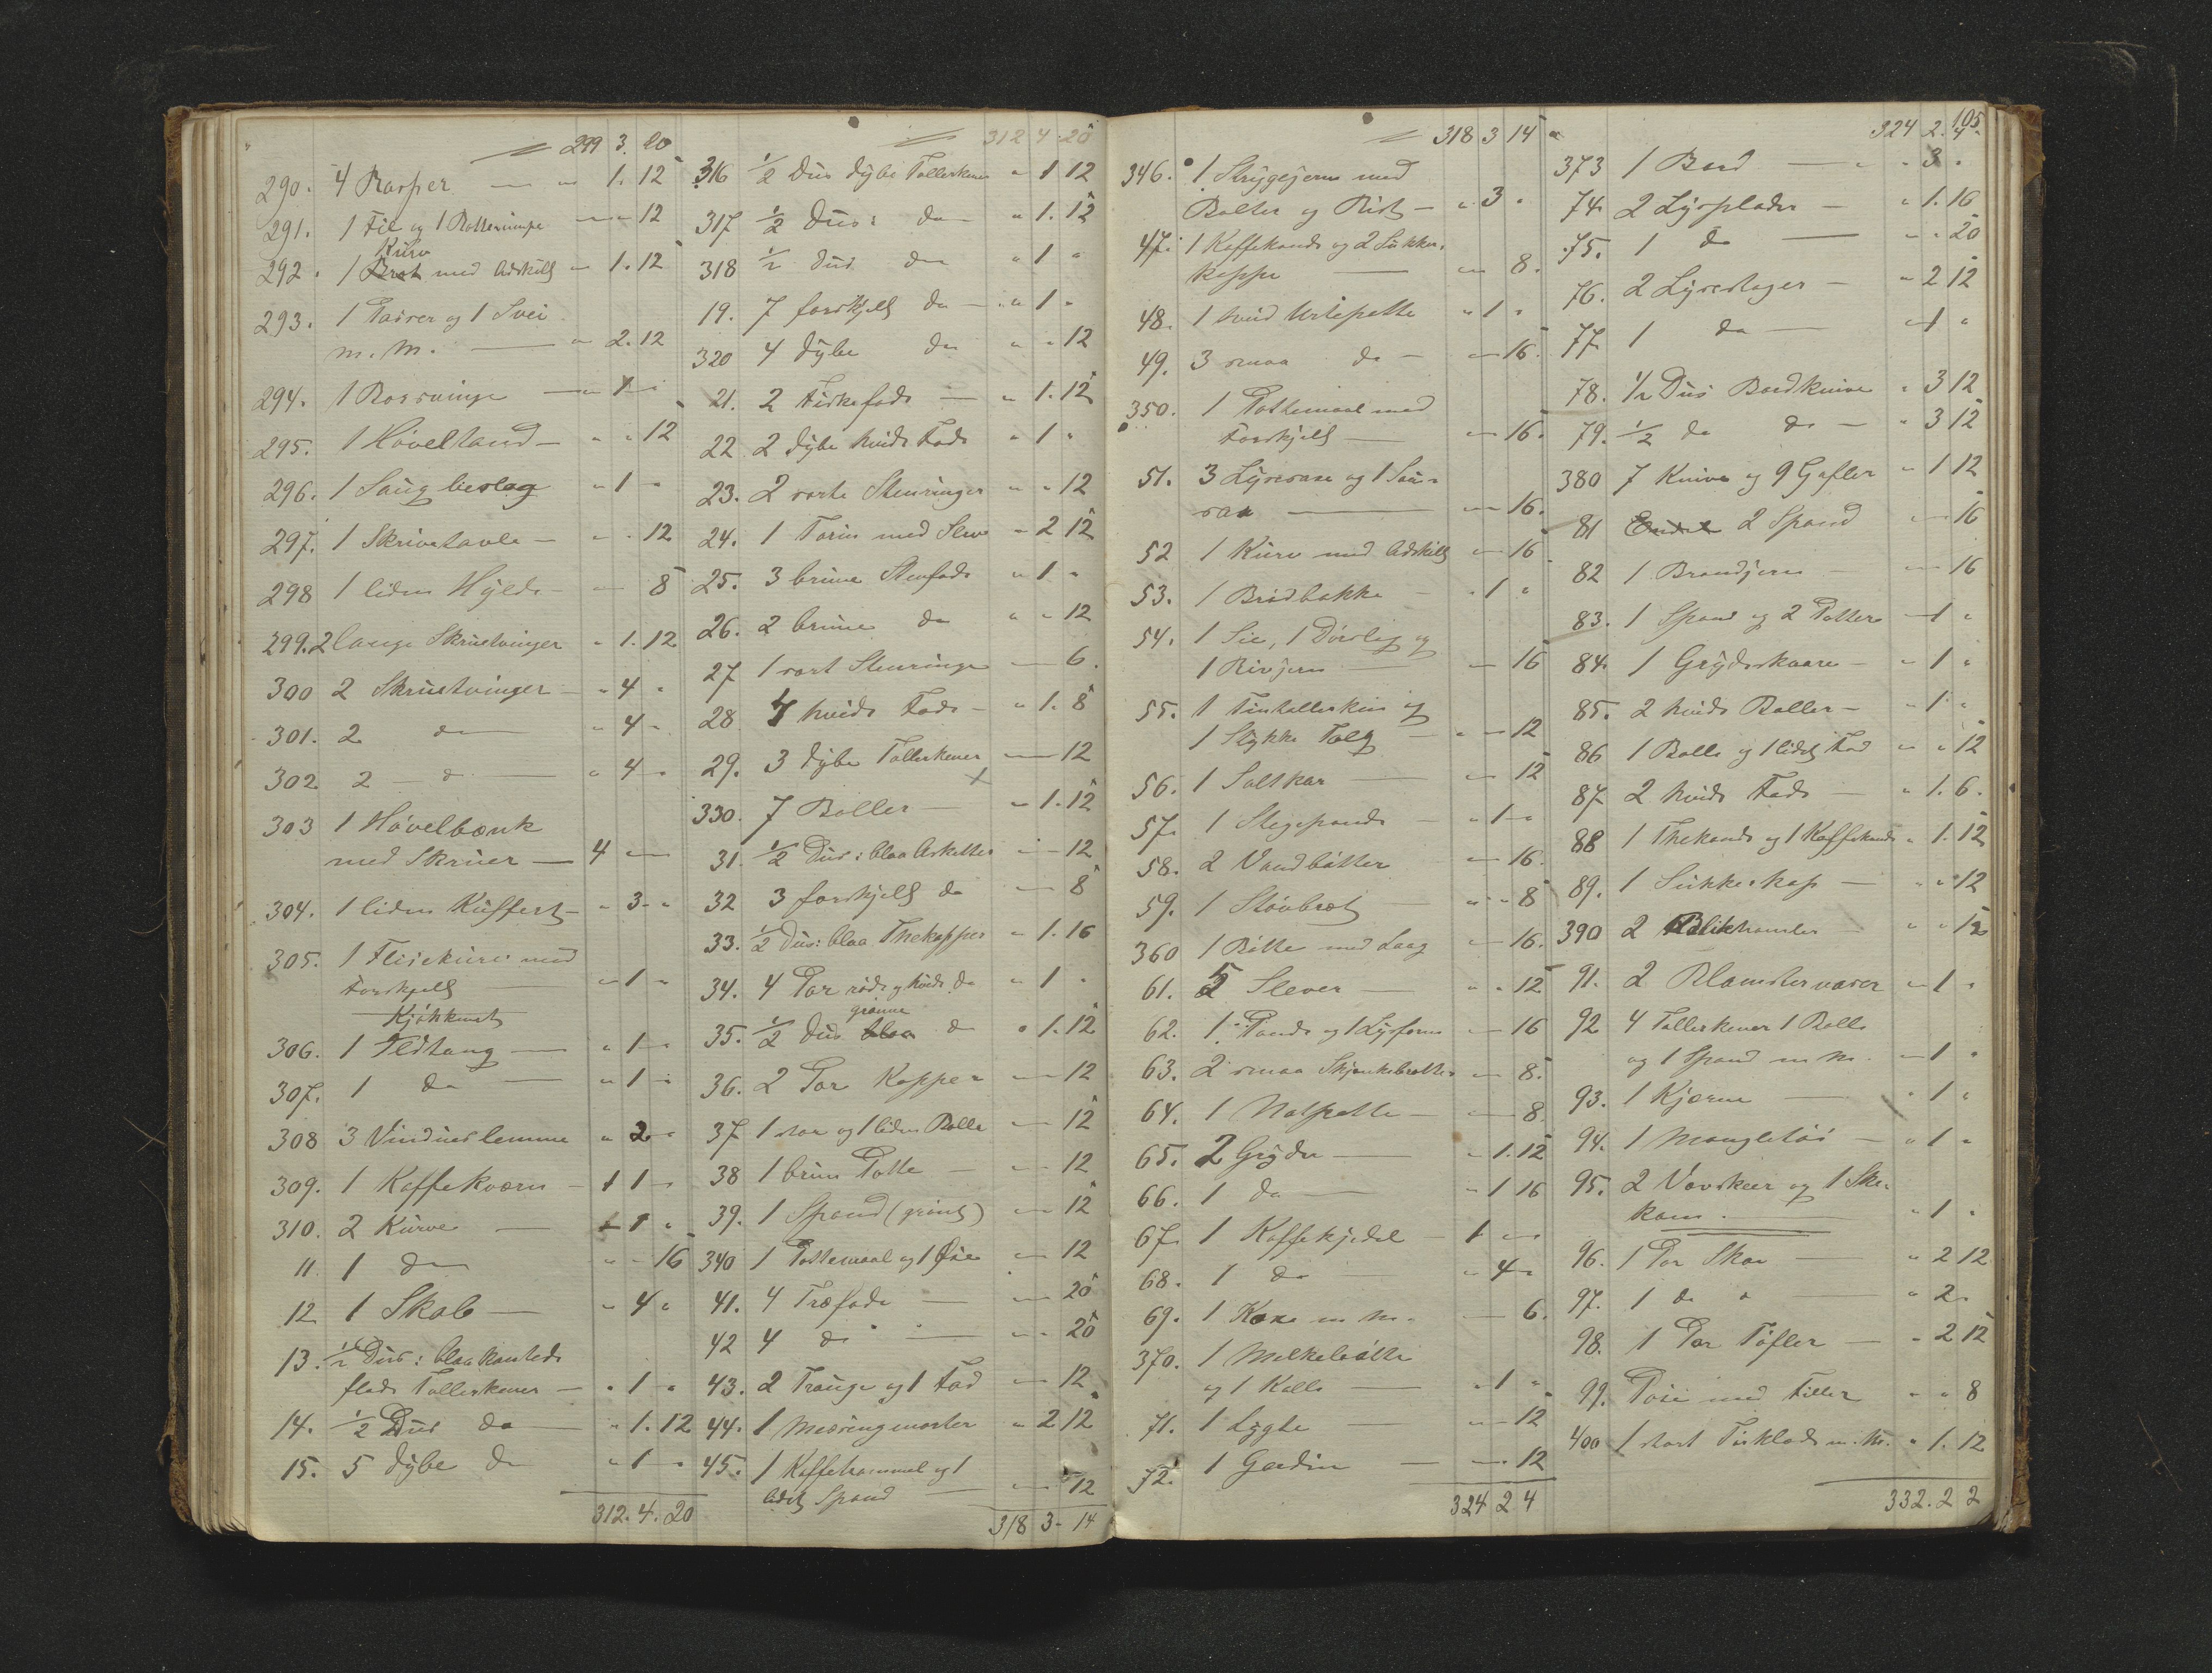 299 3. 20
290. 4 Rasper — " 1. 12
291. 1 Fil og 1 Rottesvinge — " 12
Kurv
292. 1 med Adskilt " 1. 12
293. 1 Passer og 1 Svei
m. M. — " 2. 12
294. 1 Borsvinge — " 1 "
295. 1 Høveltand — " " 12
296. 1 Saugbeslag " 1 "
297. 1 Skrivetavle — " " 12
298 1 liden Hylde — " 8
299. 2 lange Skrutvinger " 1. 12
300 2 Skrutvinger — " 4 "
301. 2 do " 4 "
302. 2 — d — " 4 "
303 1 Høvelbænk
med Skruer — 4 "
304. 1 liden Kuffert — " 3 "
305. 1 Flisekurv med
Forskjelt — " 1 "
Kjøkkenet
306. 1 Ildtang — " 1 "
307. 1 do — " 1 "
308 3 Vindueslemme " 2 "
309. 1 Kaffekværn — 1 "
310. 2 Kurve — 1 "
11. 1 do " " 16
12 1 Skab — " 4 "
13. 1/2 Dus: blaakantede
flade Tallerkener — " 1 "
14. 1/2 Dus do — " 1. 12
15. 5 dybe do " 1 "
312. 4. 20
312 4 20
316 1/2 Dus dybe Tallerkener " 1 12
317 1/2 Dus: do — " 1. 12
318 1/2 Dus do " 1 "
19. 7 forskjelt do — " 1 "
320 4 dybe do " " 12
21. 2 Fiskefade — " 1. 12
22 2 dybe hvide Fade " 1 "
23. 2 sorte Stenringer " " 12
24. 1 Terin med Slev " 2 12
25. 3 brune Stenfade " 1 "
26. 2 brune do " " 12
27 1 sort Stenringe — 6.
28 4 hvide Fade — " 1. 8
29. 3 dybe Tallerkener — 12
330. 7 Boller — " 1. 12
31. 1/2 Dus: blaa Asketter — 12
32 3 forskjelt do — 8
33. 1/2 Dus: blaa Thekopper " 1. 16
34. 4 Par røde og hvide do " 1 "
grønne
35. 1/2 Dus blaa do " 1. 12
36. 2 Par Kopper — 12
37 1 stor og 1 liden Bolle — 12
38 1 brun Potte — 12
39. 1 Spand (grønt) — 12
340 1 Pottemaal og 1 Øse — 12
41. 4 Træfade — 20
42 4 do — 20
43. 2 Trauge og 1 Fad — 12
44. 1 Messingmorter " 2 12
45. 1 Kaffetrommel og 1
lidet Spand — 12
318 3. 14
318 3 14
346. 1 Strygejern med
Bolter og Rist — " 3 "
47. 1 Kaffekande og 2 Sukker-
koppe — " 8.
48. 1 hvid Urtepotte " 1 "
49. 3 smaa do — " 16.
350. 1 Pottemaal med
Forskjelt — " 16.
51. 3 Lysesaxe og 1 Sau-
sax — " 16.
52 1 Kurv med Adskilt " 16
53. 1 Brødbakke — " 1 "
54. 1 Sie, 1 Dørslag og
1 Rivjern — " 16
55. 1 Tintallerken og
1 Stykke Talg — " 12
56. 1 Saltkar — " 12
57. 1 Stegepande — " 1 "
58. 2 Vandbøtter — " 16.
59. 1 Støvbret — " " 8
360 1 Bøtte med Laag — 16.
61. 5 Slever — " " 12
62. 1 Pande og 1 Lysform — 16
63. 2 smaa Skjænkebretter — 8.
64. 1 Natpotte — 8.
65. 2 Gryder — " 1. 12
66. 1 do — " 1 16
67. 1 Kaffekjedel — 1 "
68. 1 do — " 4 "
69. 1 m M. — 6.
370. 1 Melkebøtte
og 1 Kolle — " 1 "
71. 1 Lygte — " 12
72. 1 Gardin — " 12
324 2 4
105
324 2. 4.
373 1 Bord — " " 3 "
74. 2 Lysplader — " 1. 16
75. 1 do — " " 20
76. 2 Lysestager — " 2 12
77. 1 do — " 1 "
78. 1/2 Dus Bordknive " 3 12
79. 1/2 do do — " 3 12
380 7 Knive og 9 Gafler " 1 12
81 2 Spand " 16
82 1 Brændjern — " 16
83. 1 Spand og 2 Potter — 1 "
84. 1 Grydeskaare — " 1 "
85. 2 hvide Boller — " 1 "
86 1 Bolle og 1 lidet Fad " " 12
87 2 hvide Fade — " 1. 6.
88 1 Thekande og 1 Kaffekande " 1. 12
89. 1 Sukkerkop — " " 12
390 2 — " " 12
91. 2 Blomstervaser — 1 "
92 4 Tallerkener 1 Bolle
og 1 Spand m M. — 1 "
93. 1 Kjærne — " 1 "
94. 1 Mangletøi — " 1 "
95. 2 Vævskeer og 1 Ske-
kam. " 1 "
96. 1 Par Skoe — " 2 12
97. 1 do " — " 2 "
98. 1 Par Tøfler — " 2 12
99. Pose med Filler " " 8
400 1 stort Tørklæde m. M. " 1. 12
332. 2 2